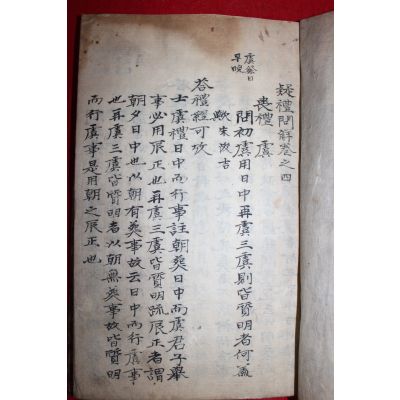 疑禮問解卷之四
喪禮
虞
虞祭日
早晚
問初虞用日中再虞三虞則皆質明者何義
歟 宋浚吉
答禮經可攷
士虞禮日中而行事註朝葬日中而虞君子擧
事必用辰正也再虞三虞皆質明疏辰正者謂
朝夕日中也以朝有葬事故云日中而行虞事
也再虞三虞皆質明者以朝無葬事故皆質明
而行虞事是用朝之辰正也